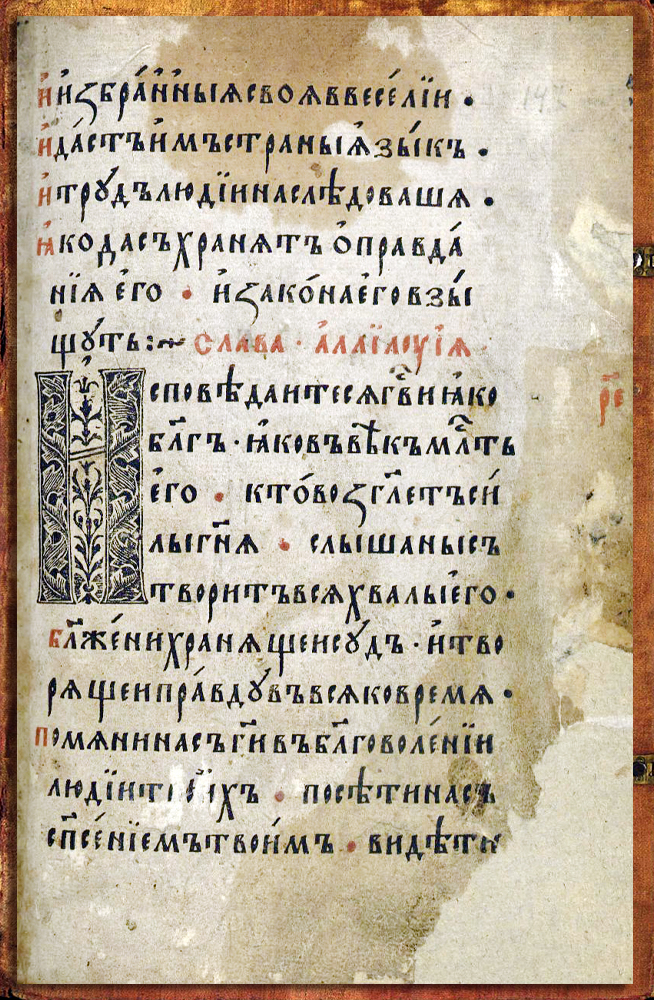 и҆и҆збра́н҆н҆ыѧ своѧ в весе́лїи •
и҆да́стъ и҆мъ страны ѧ҆зы́къ •
и҆трꙋ́дъ людїи наслѣдовашѧ •
ꙗ҆ко да съхранѧтъ ѻ҆правда́
нїѧ е҆го • и҆ зако́на е҆го взы́
щꙋ́ть :~ слава · а҆лаїлꙋїѧ
Исповѣдаитесѧ гв҃и ꙗ҆ко
бл҃гъ · ꙗ҆ко въ вѣкъ мл҃ть
е҆го • кто́ возгл҃етъ си́
лы гн҃ѧ • слышаны съ
творитъ всѧ хвалы е҆го •
бл҃же́ни хранѧщеи сꙋ́дъ · и҆тво
рѧщеи пра́вдꙋ въ всѧко времѧ •
помѧни насъ гп҃и въ бл҃говоле́нїи
людїи твоихъ • посѣти насъ
сп҃се́нїемъ твои́мъ • видѣти
рє